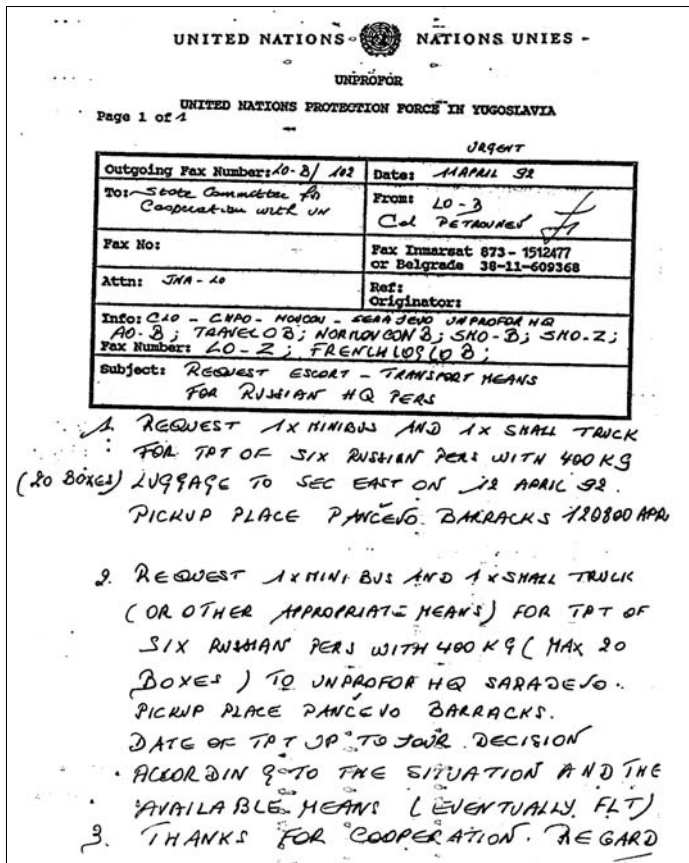 UNITED NATIONS NATIONS UNIES -
UNPROFOR
UNITED NATIONS PROTECTION FORCE IN YUGOSLAVIA
Page 1 of 1
URGENT
Outgoing Fax Number: LO-B/ 102
Date: 11 APRIL 92
To: State Committee for
Cooperation with UN
From: LO-B
Col PETROUNEV
Fax No:
Fax Inmarsat 873- 1512477
or Belgrade 38-11-609368
Attn: JNA - LO
Ref:
Originator:
Info: CLO - CMPO - MOVCON - SERAJEVO UNPROFOR HQ
AO-B; TRAVELO B; NORMOVCON B; SMO-B; SMO-Z;
Fax Number: LO-Z; FRENCH LOG LO B;
Subject: REQUEST ESCORT - TRANSPORT MEANS
FOR RUSSIAN HQ PERS
1. REQUEST 1X MINIBUS AND 1X SMALL TRUCK
FOR TPT OF SIX RUSSIAN PERS WITH 400 KG
(20 BOXES) LUGGAGE TO SEC EAST ON 12 APRIL 92.
PICKUP PLACE PANCEVO BARRACKS 120800 APR
2. REQUEST 1X MINI BUS AND 1X SMALL TRUCK
(OR OTHER APPROPRIATE MEANS) FOR TPT OF
SIX RUSSIAN PERS WITH 400 KG (MAX 20
BOXES) TO UNPROFOR HQ SARADEJO.
PICKUP PLACE PANCEVO BARRACKS.
DATE OF TPT UP TO YOUR DECISION
ACCORDING TO THE SITUATION AND THE
AVAILABLE MEANS (EVENTUALLY FLT)
3. THANKS FOR COOPERATION. REGARD